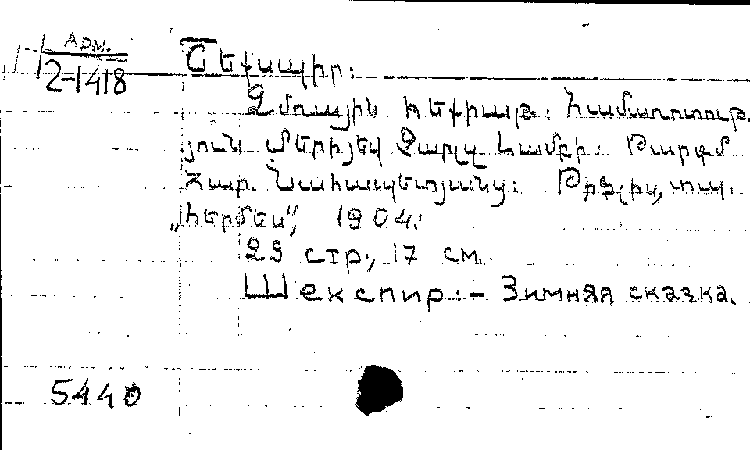 Арм.
2-1418
Շեքսպիր։
Ձմռային հեքիաթ։ Համառօտութ
յուն Մերիյեվ Չարլզ Լամբի։ Թարգմ
Հար. Նահապետյանց։ Թիֆլիս, տպ.
„Հերմես", 1904։
29 стр., 17 см.
Шекспир.- Зимняя сказка.
5440